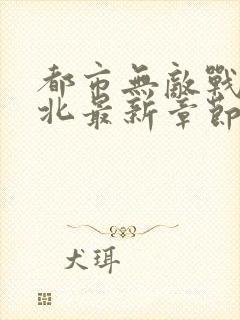 都市無敵戰
北最新章節
犬珥